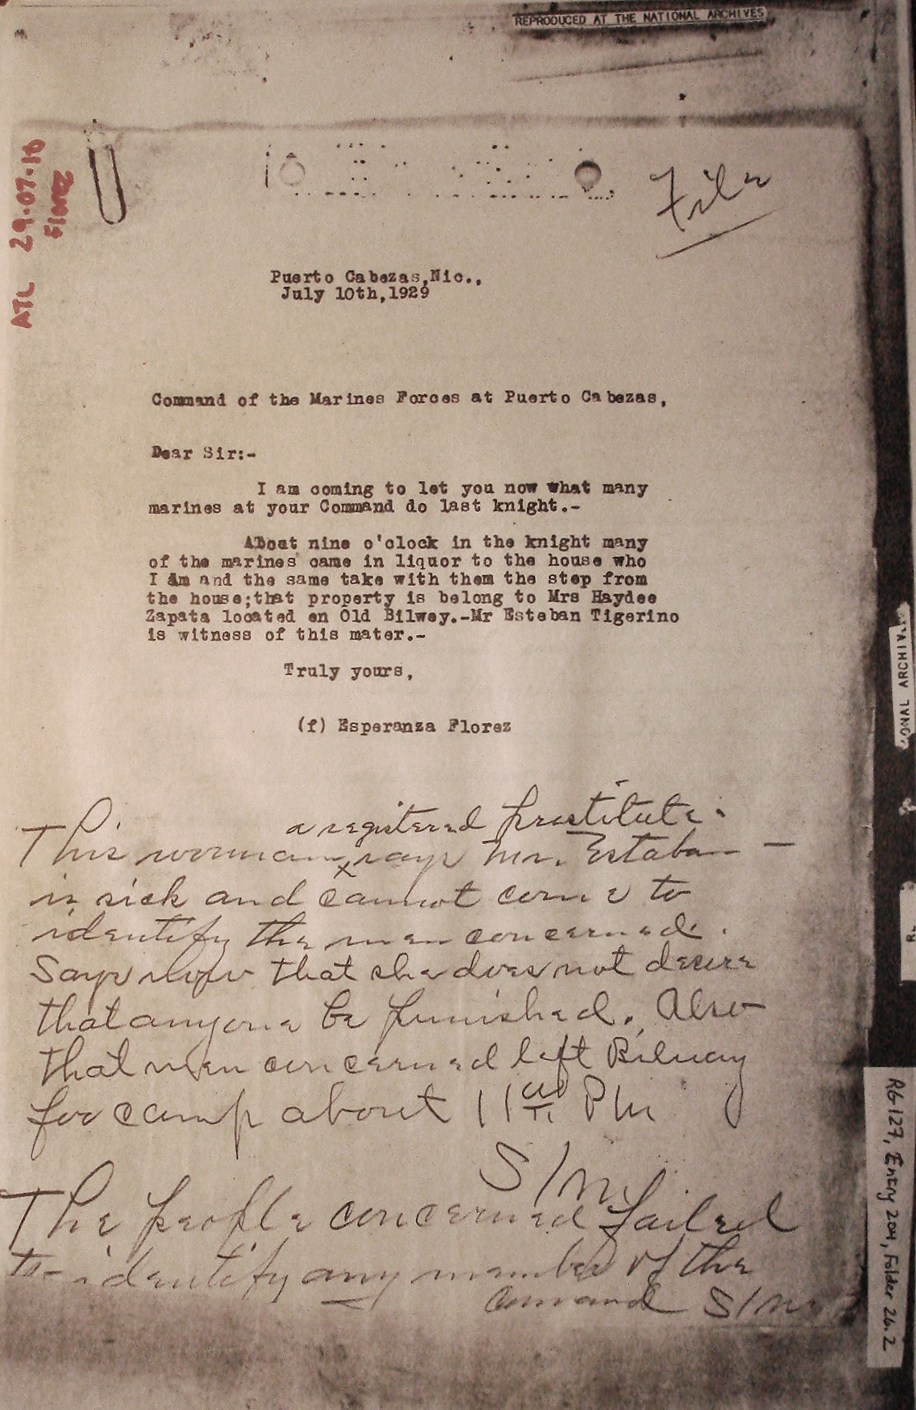 REPRODUCED AT THE NATIONAL ARCHIVES
ATL 29.07.10
Florez
File
Puerto Cabezas,Nic.,
July 10th,1929
Command of the Marines Forces at Puerto Cabezas,
Dear Sir:-
I am coming to let you now what many
marines at your Command do last knight.-
About nine o'clock in the knight many
of the marines came in liquor to the house who
I am and the same take with them the step from
the house;that property is belong to Mrs Haydee
Zapata located en Old Bilwey.-Mr Esteban Tigerino
is witness of this mater.-
Truly yours,
(f) Esperanza Florez
a registered prostitute.
This woman x says Mr. Estaban —
is sick and cannot come to
identify the men concerned.
Says now that she does not desire
that anyone be punished. Also
that men concerned left Biluay
for camp about 11 PM
The people concerned failed
to identify any member of the
command
ONAL ARCHIV
RG 127, Entry 204, Folder 26.2